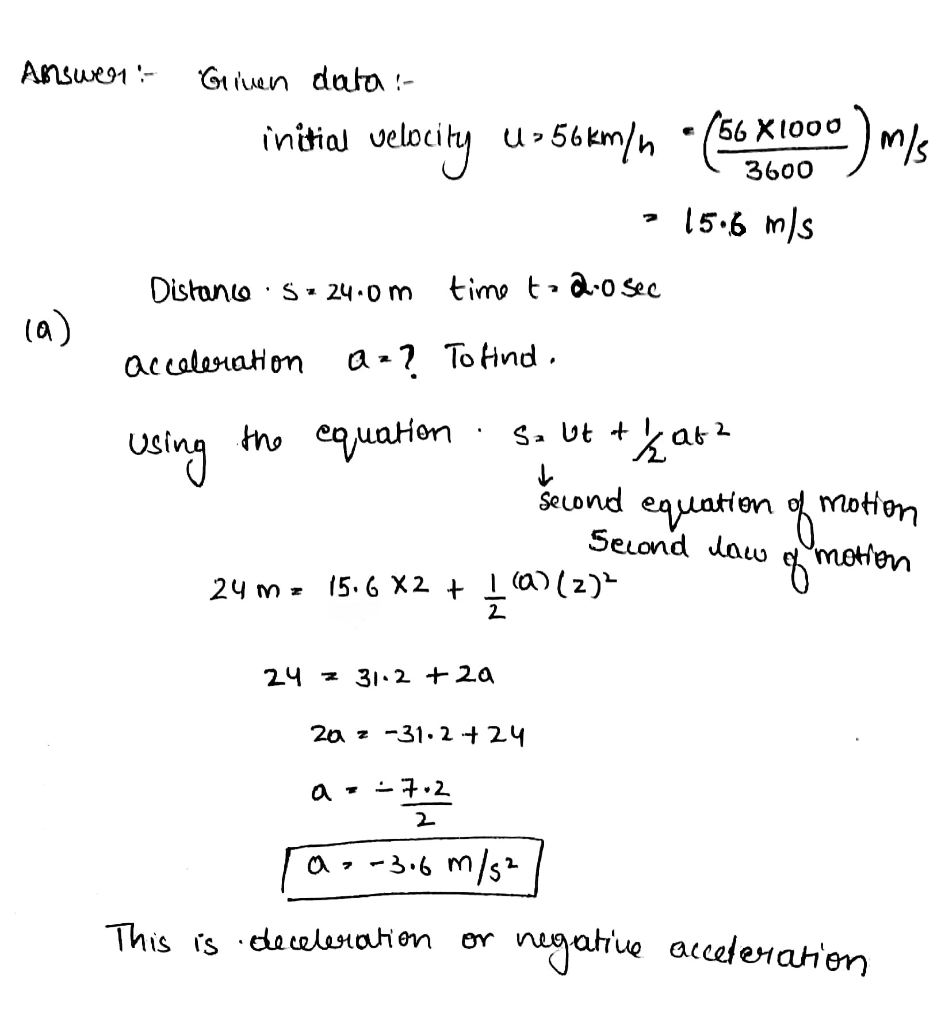 Answer :- Given data :-
initial velocity u = 56 km/h = (56 X 1000 / 3600) m/s
= 15.6 m/s
Distance . s = 24.0 m time t = 2.0 sec
(a)
acceleration a = ? To find .
Using the equation . s = ut + 1/2 at²
↓
Second equation of motion
Second law of motion
24 m = 15.6 X 2 + 1/2 (a) (2)²
24 = 31.2 + 2a
2a = -31.2 + 24
a = -7.2 / 2
a = -3.6 m/s²
This is deceleration or negative acceleration